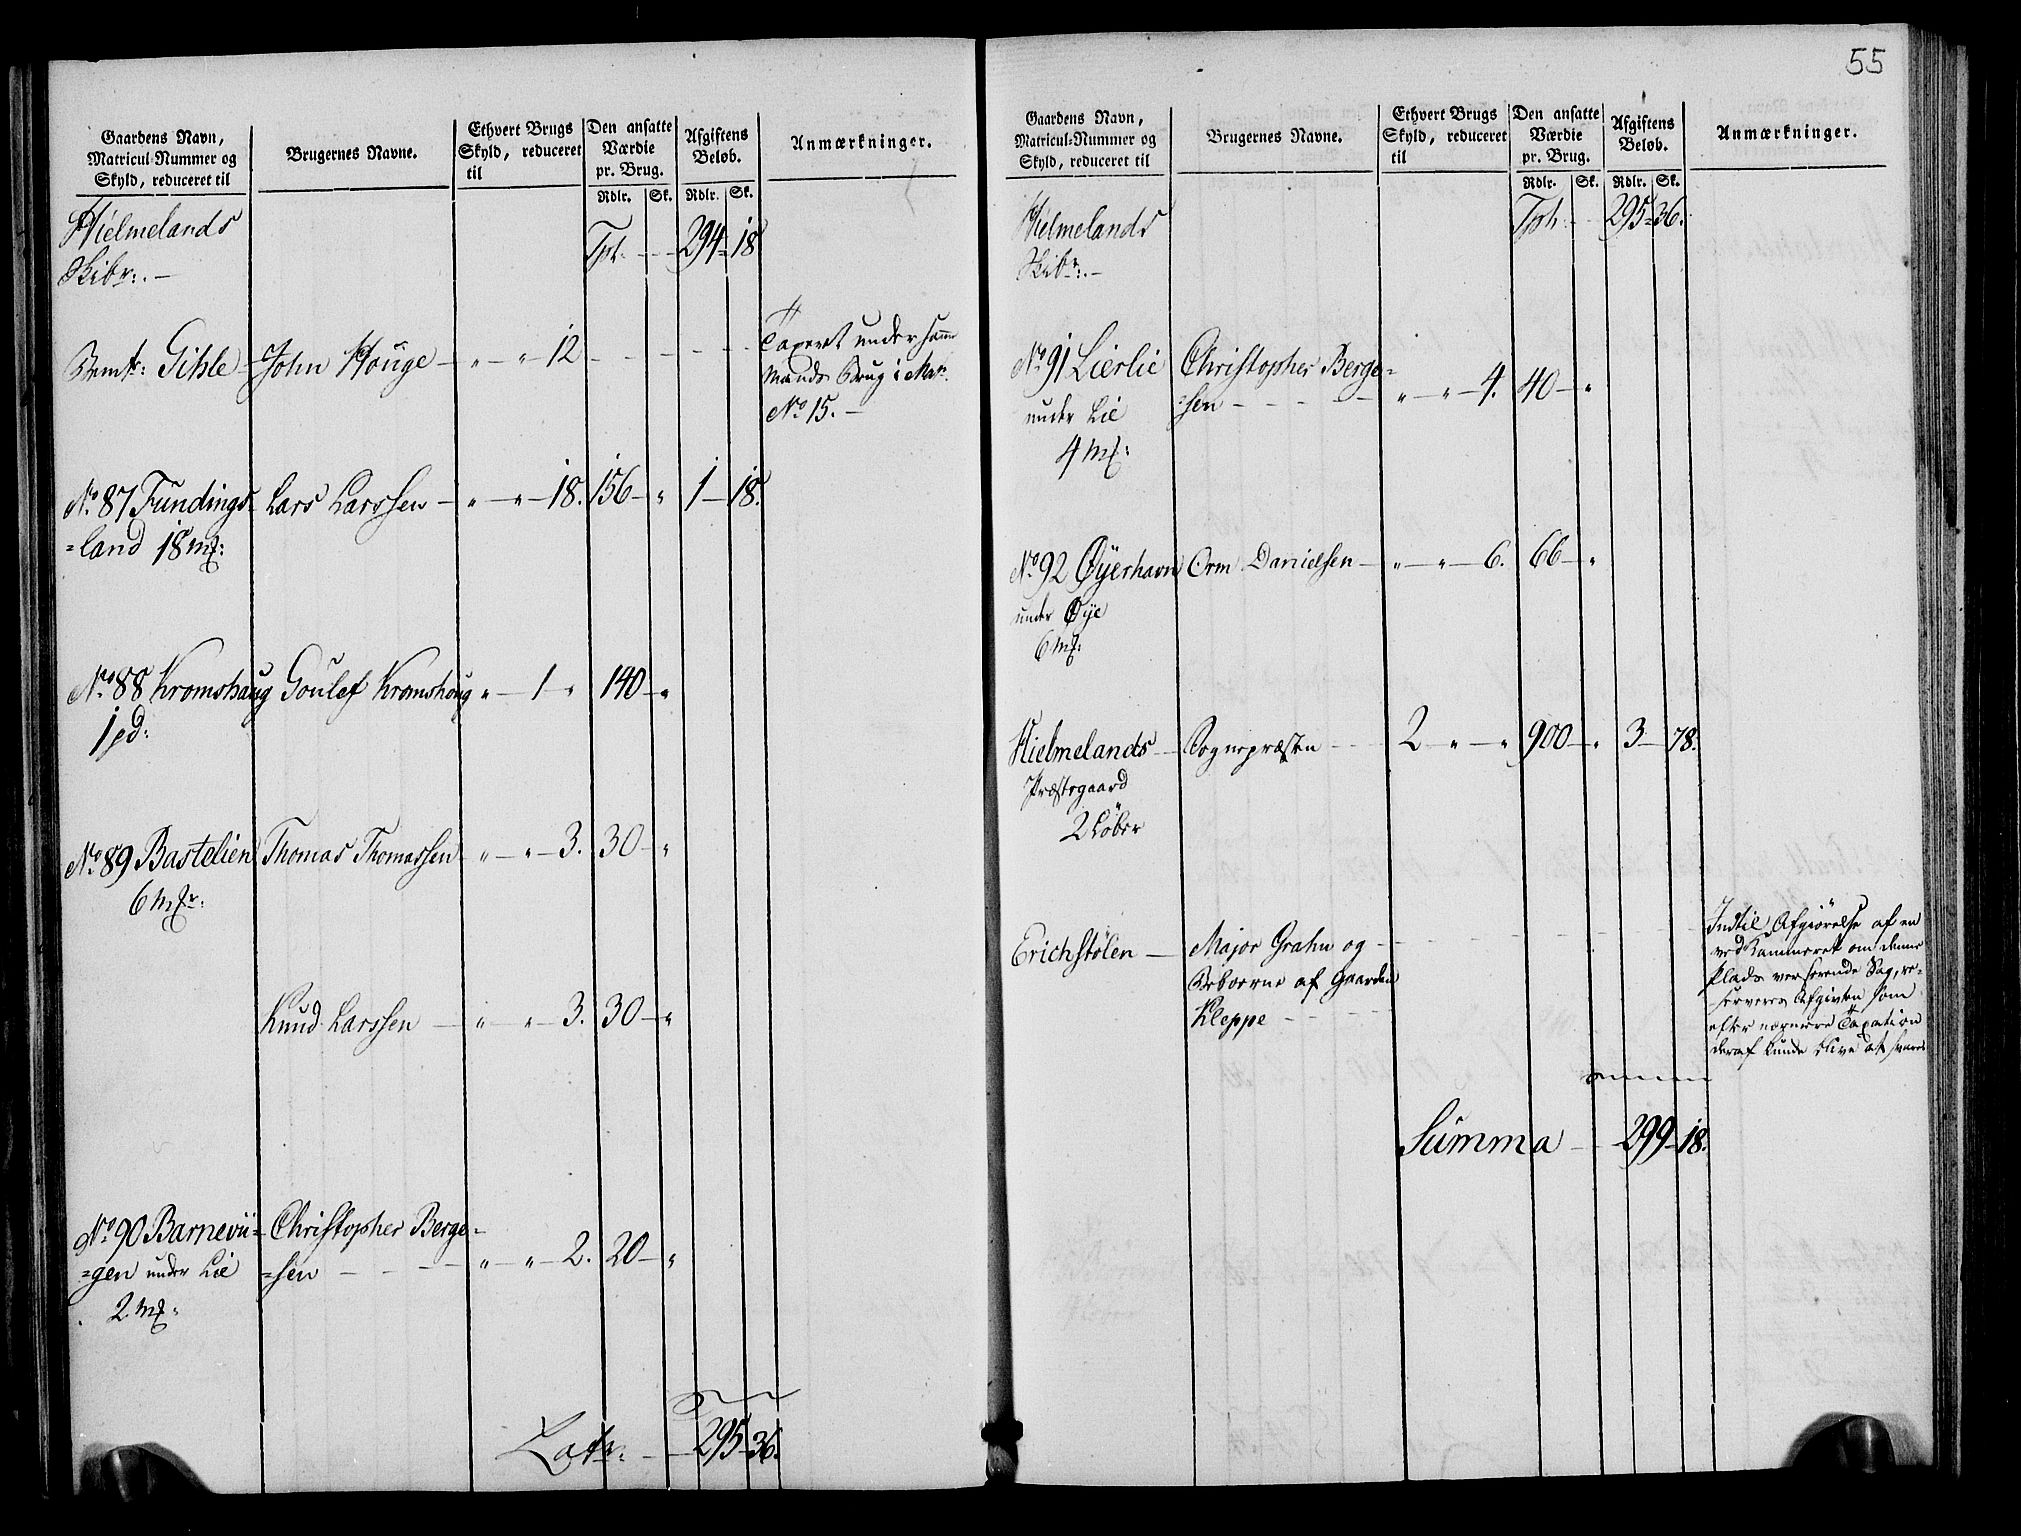 Gaardens Navn, Matricul-Nummer og Skyld, reduceret til
Brugernes Navne.
Ethvert Brugs Skyld, reduceret til
Den ansatte Værdie pr. Brug.
Afgiftens Beløb.
Anmærkninger.
Rdlr. Sk. Rdlr. Sk.
Hielmelands Tpt: - - 294 - 18
Skibr:. -
Bemt: Gihle - John Houge - " - " - 12 - - - - - - Taxeret under samme
Mands Brug i Mat.
No 15. -
No 87 Fundings- Lars Larssen - " - " - 18. 156 - " 1 - 18.
=land 18 mk:
No 88 Kromshaug Goulef Kromshoug " - 1 - " 140 - "
1 pd:
No 89 Bastelien Thomas Thomassen - " - " - 3. 30 - "
6 mkr:
Knud Larssen - " - " - 3. 30 - "
No 90 Barnevii= Christopher Berge=
=gen under Lie =sen - - - - " - " - 2. 20 - "
2 mk:
Latr: - - 295 - 36.
55
Gaardens Navn, Matricul-Nummer og Skyld, reduceret til
Brugernes Navne.
Ethvert Brugs Skyld, reduceret til
Den ansatte Værdie pr. Brug.
Afgiftens Beløb.
Anmærkninger.
Rdlr. Sk. Rdlr. Sk.
Hielmelands Tpt: - - 295 - 36.
Skibr:. -
No 91 Lierlie Christopher Berge=
under Lie =sen - - - - - " - " - 4. 40 - "
4 mk:
No 92 Øyerhavn Orm Danielsen - " - " - 6. 66 - "
under Øye
6 mk:
Hielmelands - Sognepræsten - - - 2 - " - " 900 - " 3 - 78.
Præstegaard
2 Løber
Erichstølen - Major Grahn og - - - - - - - Indtil Afgiørelse af en
Beboerne af Gaarden ved Kammeret om denne
Kleppe - - - - Plads verserende Sag, re-
serveres Afgivten som
efter nærmere Taxation
deraf kunde blive at svare
Summa - - 299 - 18.